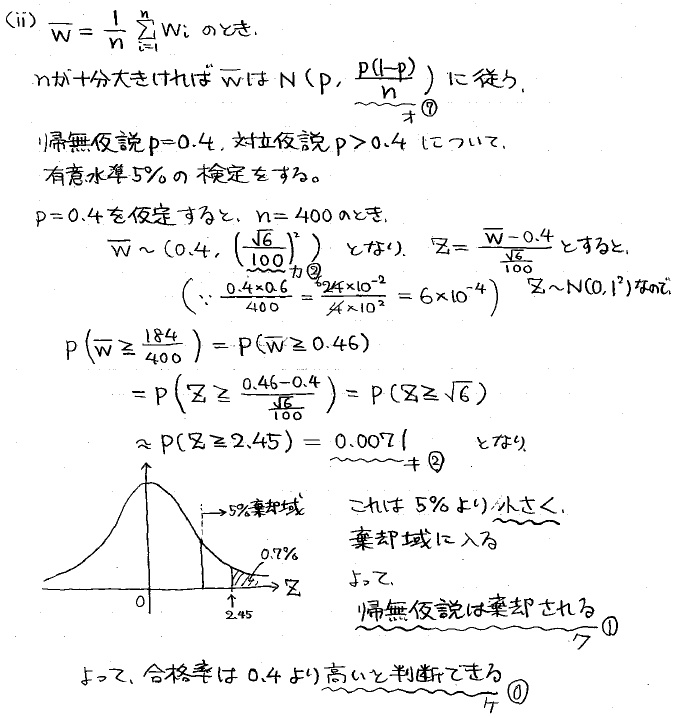 (ii) W̄ = 1/n Σ_{i=1}^{n} Wi のとき、
nが十分大きければ W̄は N(p, p(1-p)/n) に従う、
オ ⑦
帰無仮説 p=0.4, 対立仮説 p>0.4 について、
有意水準5%の検定をする。
p=0.4を仮定すると、n=400のとき、
W̄ ~ (0.4, (√6/100)²) となり、 Z = (W̄-0.4)/(√6/100) とすると、
カ ②
(∵ 0.4×0.6/400 = 24×10⁻²/4×10² = 6×10⁻⁴) Z~N(0,1²)なので、
P(W̄ ≧ 184/400) = P(W̄ ≧ 0.46)
= P(Z ≧ (0.46-0.4)/(√6/100)) = P(Z ≧ √6)
≈ P(Z ≧ 2.45) = 0.0071 となり、
キ ②
→5%棄却域
0.7%
Z
0
2.45
これは 5%より小さく、
棄却域に入る
よって、
帰無仮説は棄却される
ク ①
よって、合格率は 0.4より高いと判断できる
ケ ⓪